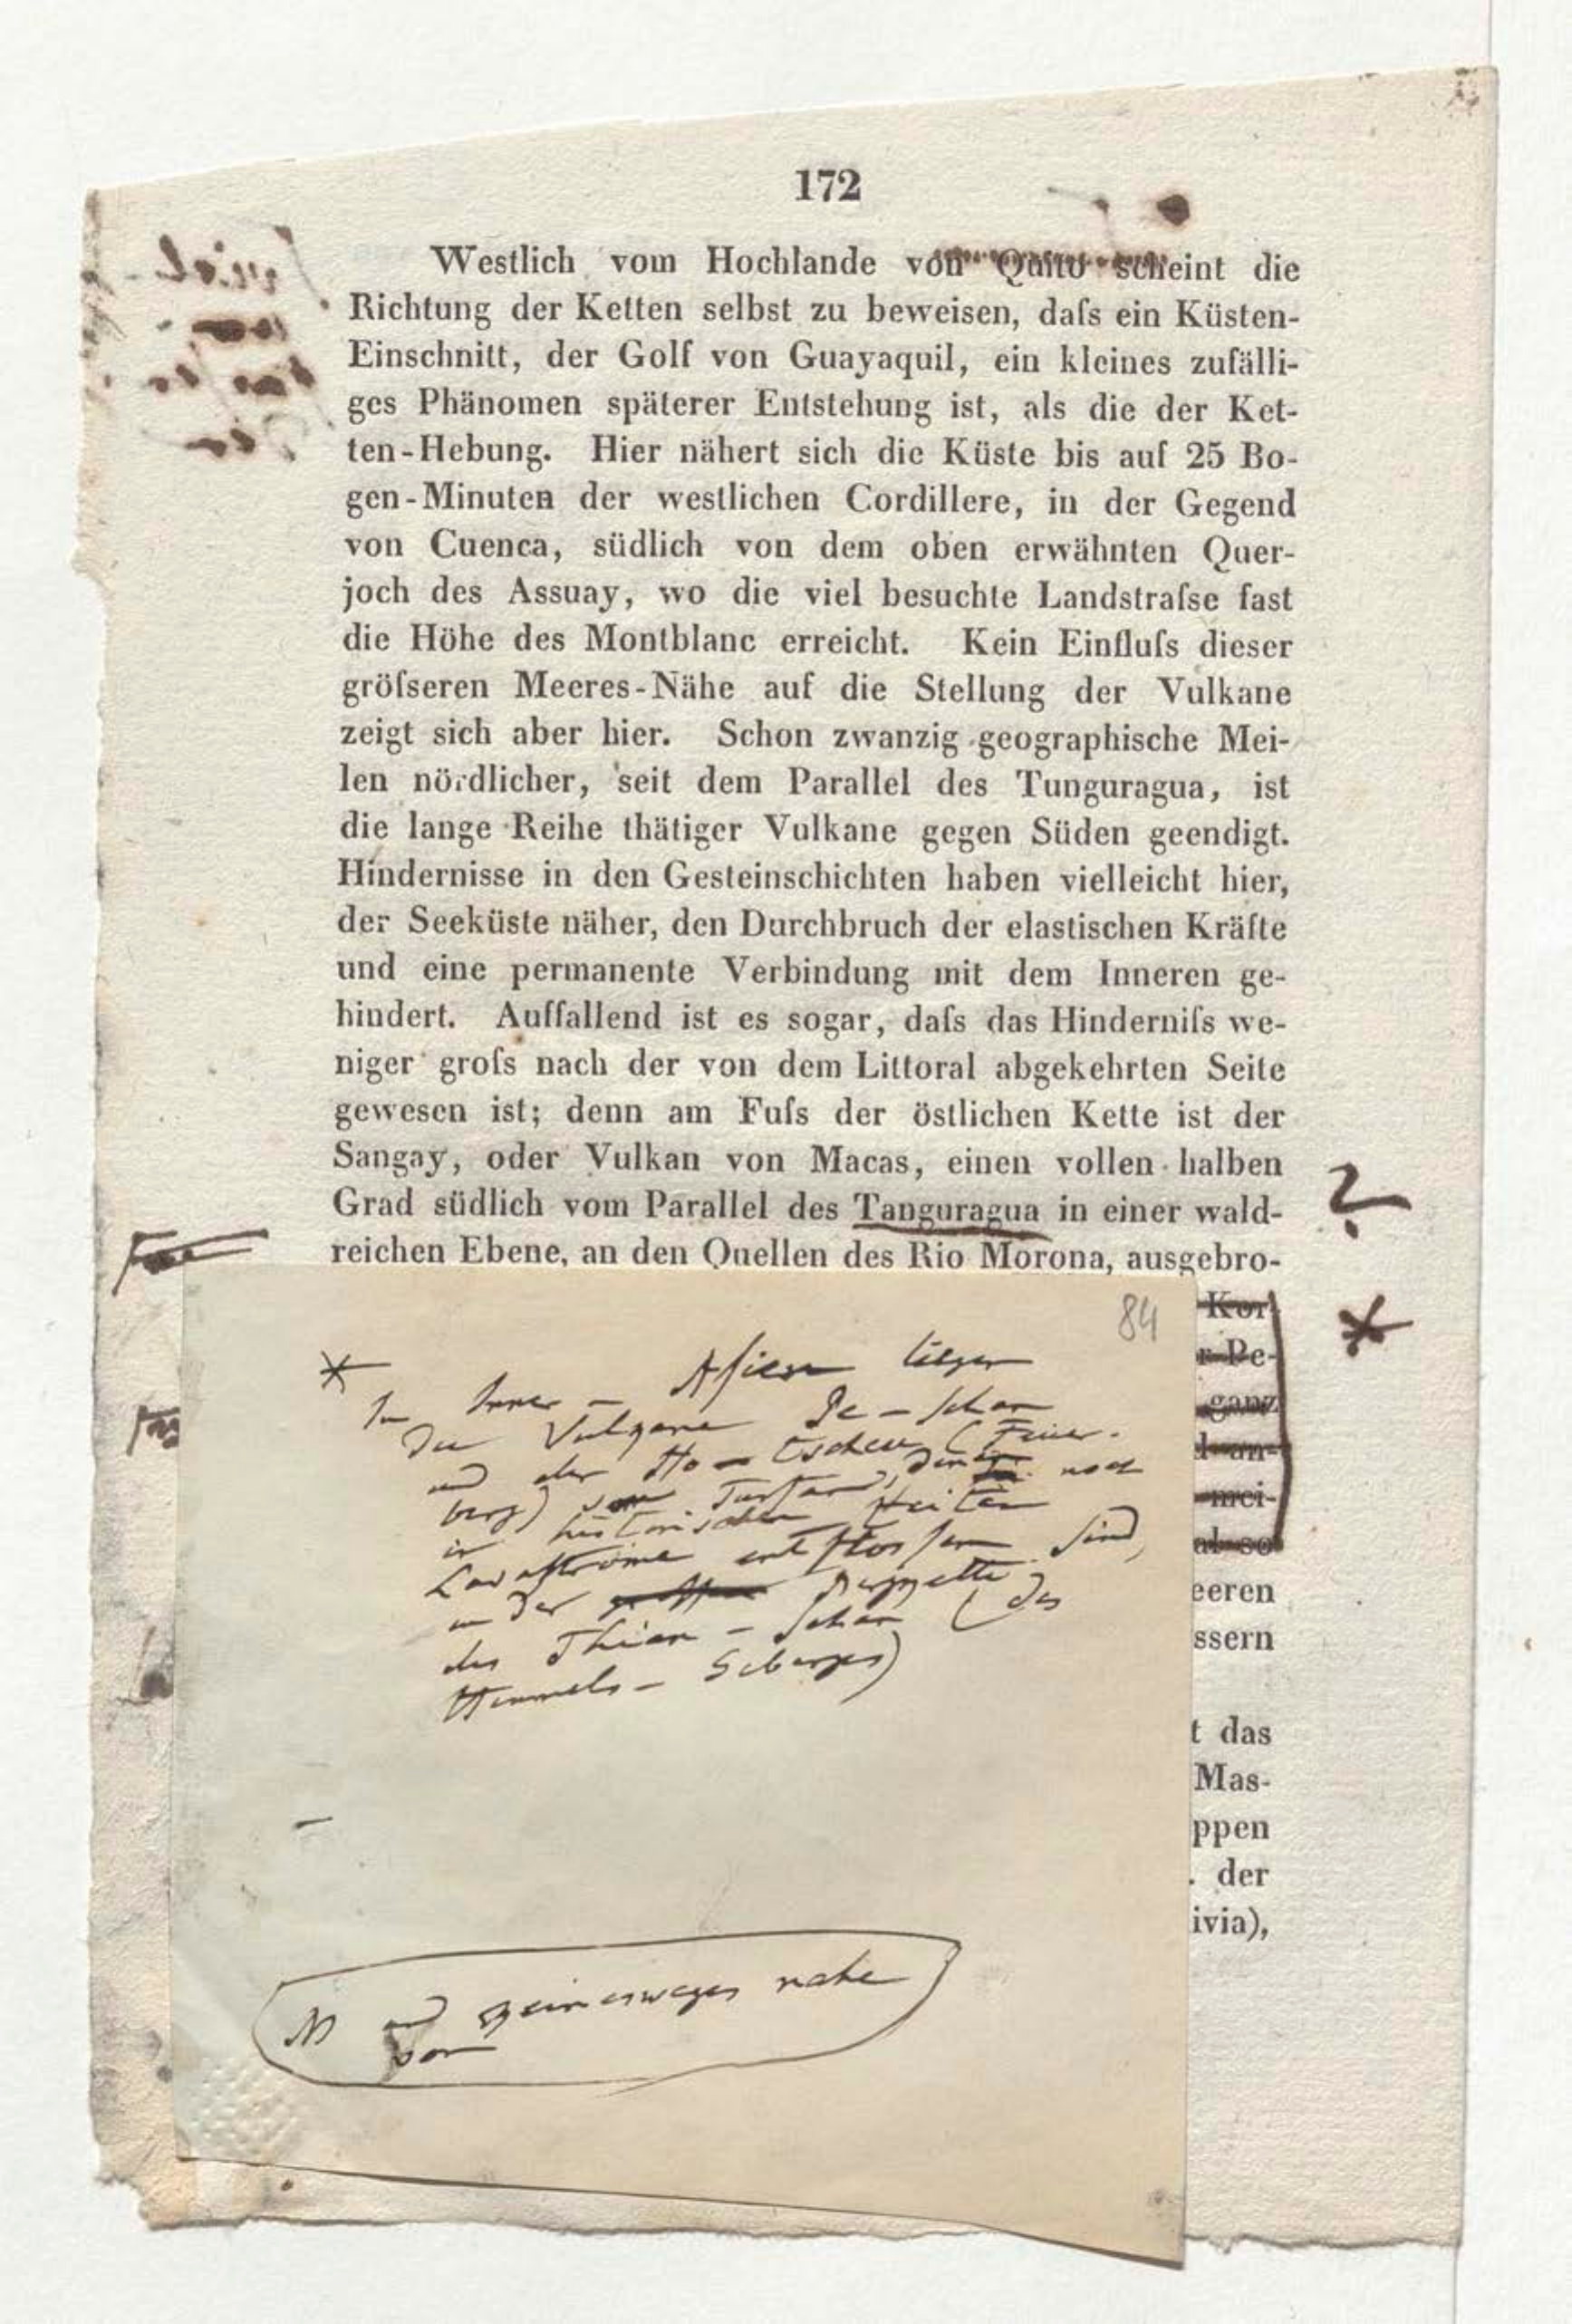 172
Westlich vom Hochlande von Quito scheint die
Richtung der Ketten selbst zu beweisen, daſs ein Küsten-
Einschnitt, der Golf von Guayaquil, ein kleines zufälli-
ges Phänomen späterer Entstehung ist, als die der Ket-
ten-Hebung. Hier nähert sich die Küste bis auf 25 Bo-
gen-Minuten der westlichen Cordillere, in der Gegend
von Cuenca, südlich von dem oben erwähnten Quer-
joch des Assuay, wo die viel besuchte Landstraſse fast
die Höhe des Montblanc erreicht. Kein Einfluſs dieser
gröſseren Meeres-Nähe auf die Stellung der Vulkane
zeigt sich aber hier. Schon zwanzig geographische Mei-
len nördlicher, seit dem Parallel des Tunguragua, ist
die lange Reihe thätiger Vulkane gegen Süden geendigt.
Hindernisse in den Gesteinschichten haben vielleicht hier,
der Seeküste näher, den Durchbruch der elastischen Kräfte
und eine permanente Verbindung mit dem Inneren ge-
hindert. Auffallend ist es sogar, daſs das Hinderniſs we-
niger groſs nach der von dem Littoral abgekehrten Seite
gewesen ist; denn am Fuſs der östlichen Kette ist der
Sangay, oder Vulkan von Macas, einen vollen halben
Grad südlich vom Parallel des Tanguragua in einer wald-
reichen Ebene, an den Quellen des Rio Morona, ausgebro-
?
Kor-
*
r Pe-
ganz
d an-
mei-
al so
eeren
ssern
t das
Mas-
ppen
. der
ivia),
84
* Im Inner- Asien liegen
die Vulkane Pe-schan
und der Ho-tscheu (Feuer-
berg) von Turfan, denen noch
in historischen Zeiten
Lavaströme entflossen sind,
in der Bergkette
des Thian-Schan (des
Himmels-Gebirges)
und keineswegs nahe
von